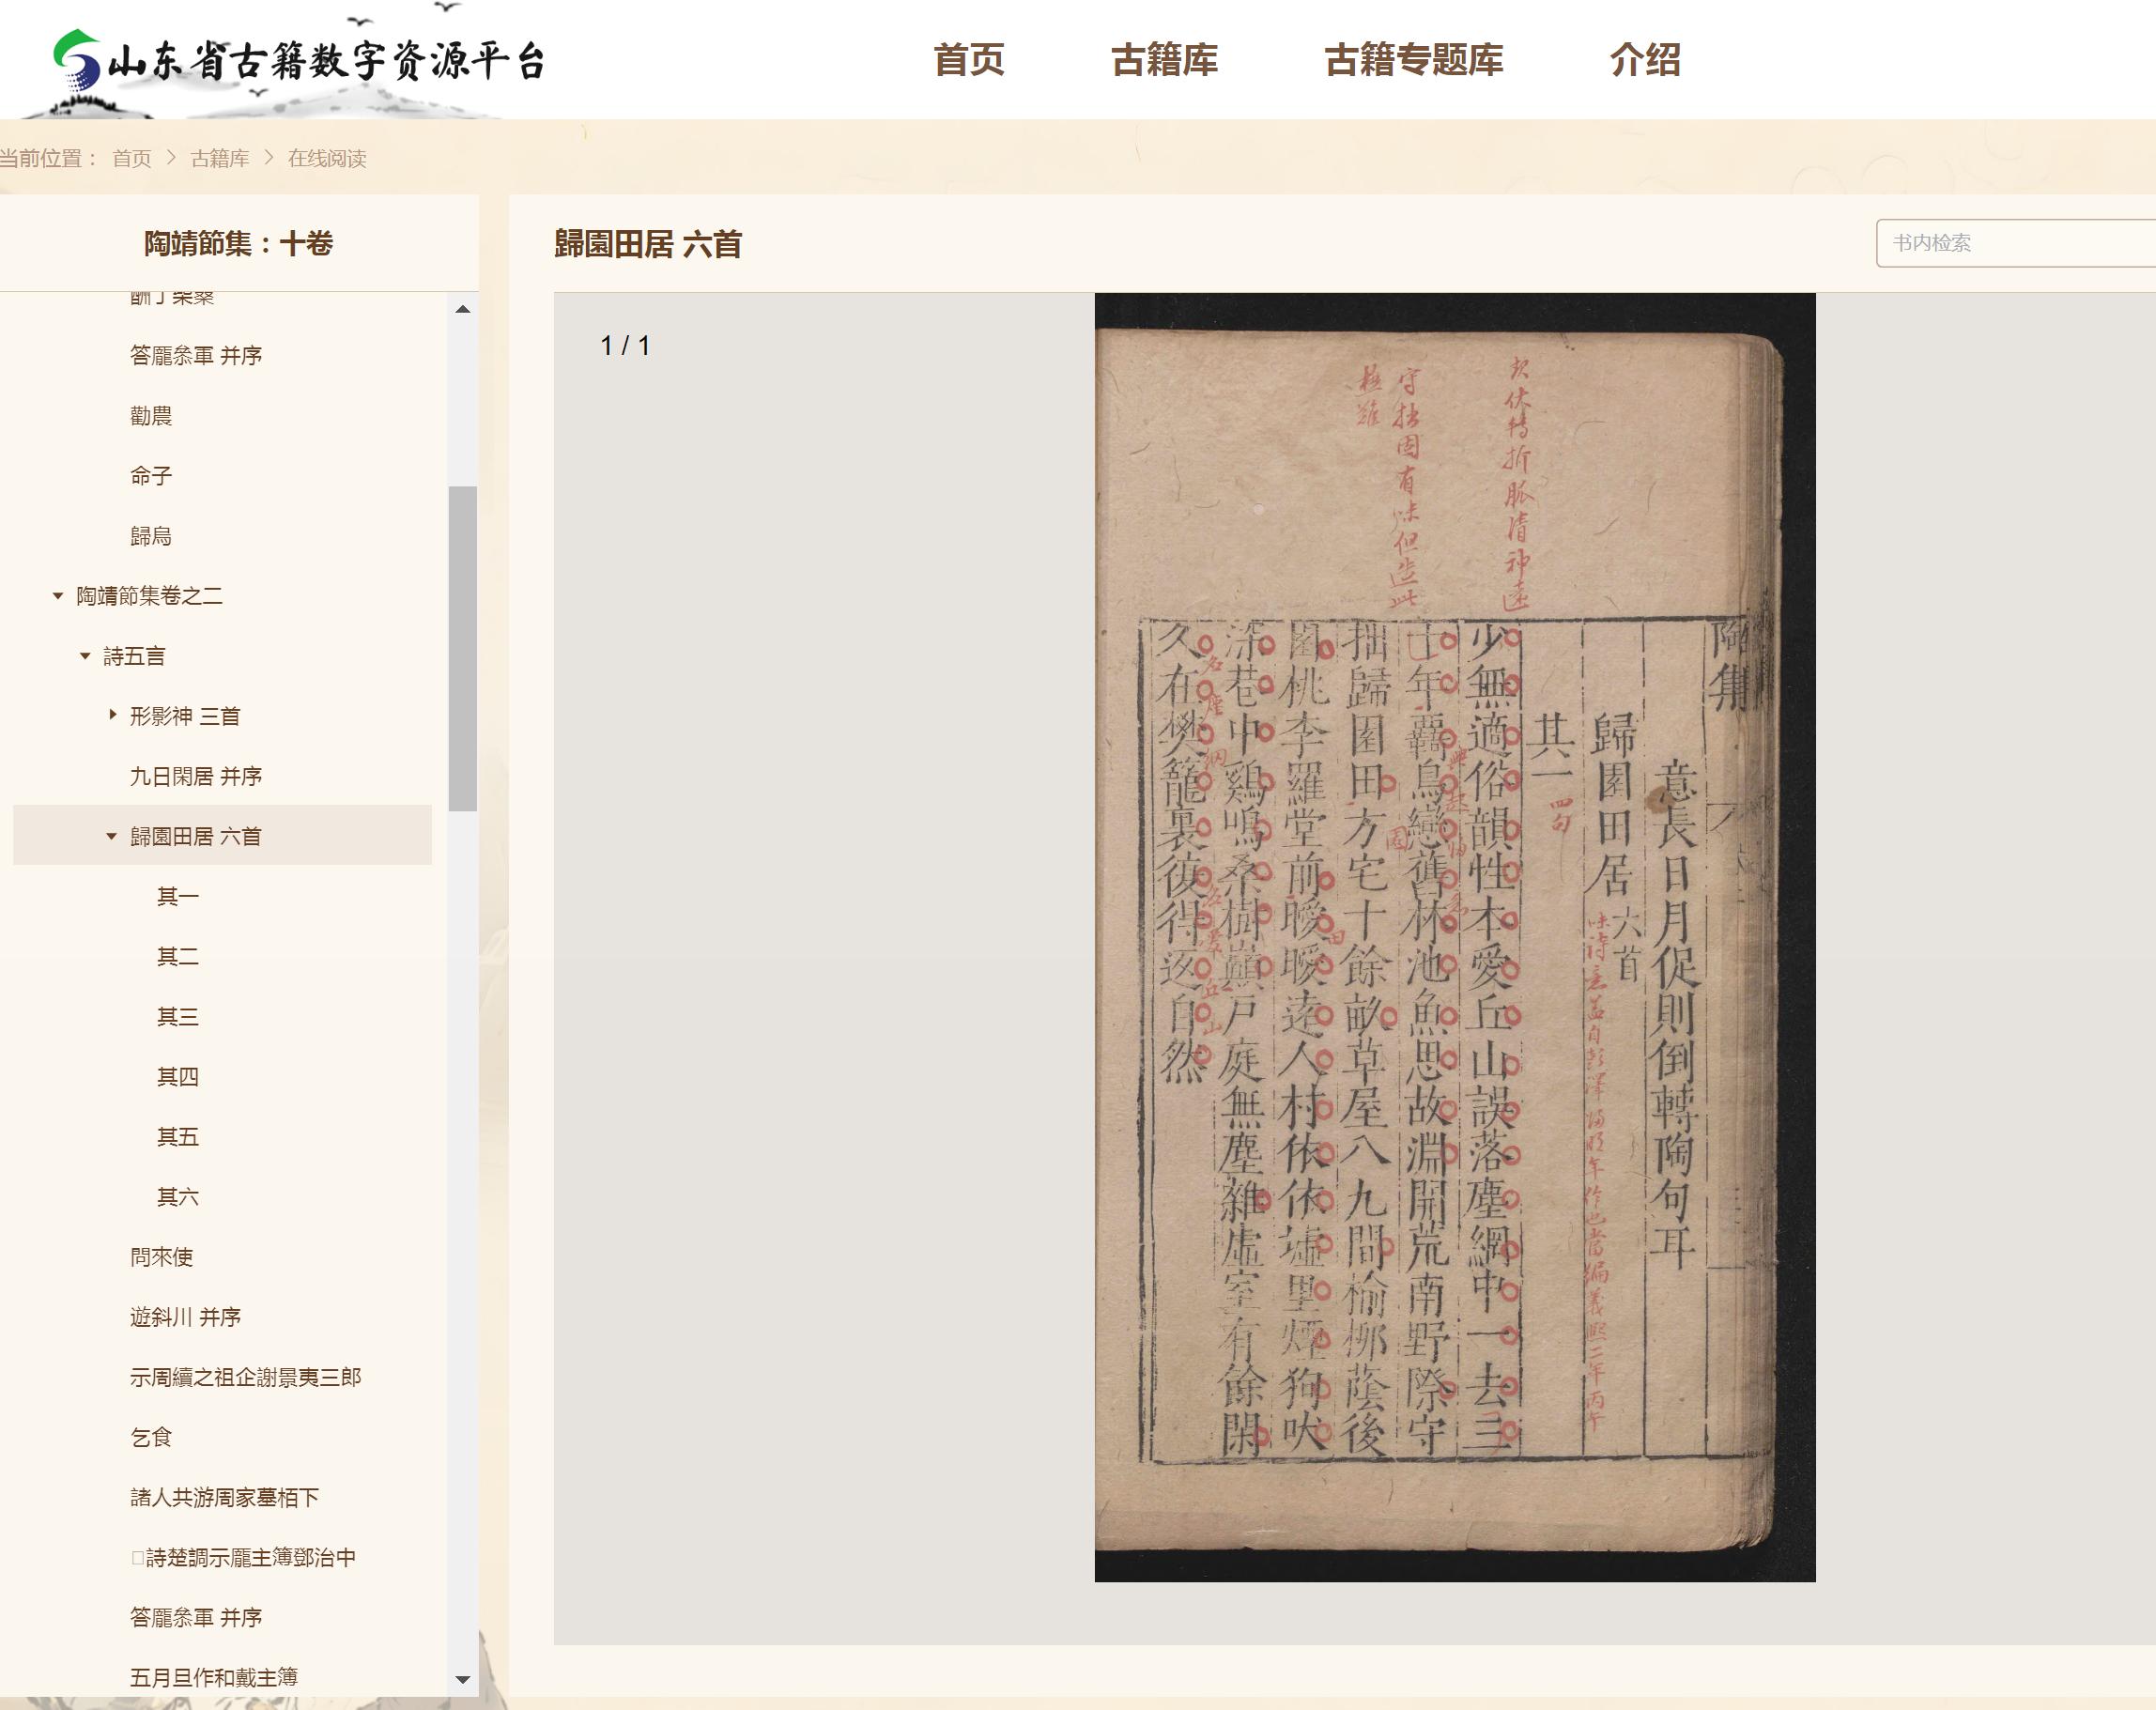 山东省古籍数字资源平台
首页
古籍库
古籍专题库
介绍
当前位置： 首页 > 古籍库 > 在线阅读
陶靖節集：十卷
酬丁柴桑
答龎叅軍 并序
勸農
命子
歸鳥
陶靖節集卷之二
詩五言
形影神 三首
九日閑居 并序
歸園田居 六首
其一
其二
其三
其四
其五
其六
問來使
遊斜川 并序
示周續之祖企謝景夷三郎
乞食
諸人共游周家墓栢下
詩楚調示龎主簿鄧治中
答龎叅軍 并序
五月旦作和戴主簿
歸園田居 六首
书内检索
1 / 1
起伏轉折脈清神遠
守拙固有味但造此
極難
陶集
意長日月促則倒轉陶句耳
歸園田居六首
味詩意蓋自彭澤歸明年作也當編義熙二年丙午
其一
四句
少無適俗韻性本愛丘山誤落塵網中一去三
十年覊鳥戀舊林池魚思故淵開荒南野際守
拙歸園田方宅十餘畝草屋八九間榆栁蔭後
園桃李羅堂前曖曖逺人村依依墟里煙狗吠
深巷中鷄鳴桑樹巔戸庭無塵雜虛室有餘閑
久在樊籠裏復得返自然